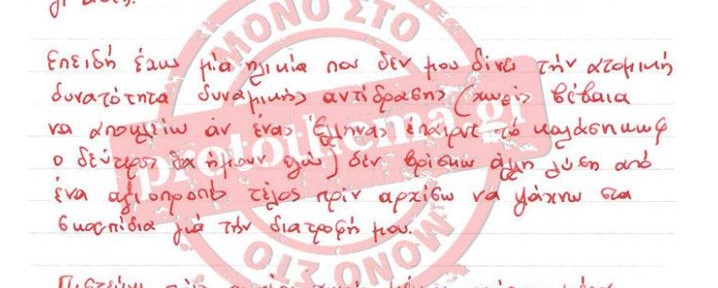 Επειδή έχω μία ηλικία που δεν μου δίνει τήν ατομική
δυνατότητα δυναμικής αντίδρασης (χωρίς βέβαια
να αποκλείω άν ένας Έλληνας έπαιρνε τό καλάσηκωφ
ο δεύτερος θα ήμουν εγώ) δεν βρίσκω άλλη λύση από
ένα αξιοπρεπές τέλος πρίν αρχίσω να ψάχνω στα
σκουπίδια γιά τήν διατροφή μου.
Πιστεύω πώς
ΜΟΝΟ ΣΤΟ
protothema.gr
ΜΟΝΟ ΣΤΟ